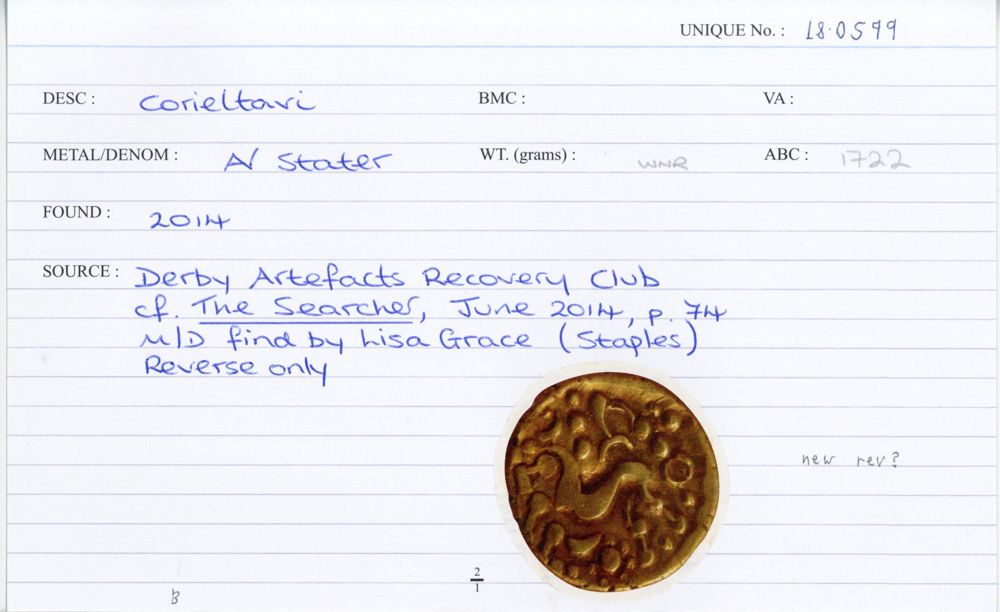 UNIQUE No. : 18.0599
DESC : Corieltavi BMC : VA :
METAL/DENOM : A/ Stater WT. (grams) : WNR ABC : 1722
FOUND : 2014
SOURCE : Derby Artefacts Recovery Club
cf. The Searcher, June 2014, p. 74
M/D find by Lisa Grace (Staples)
Reverse only
new rev?
2/1
B